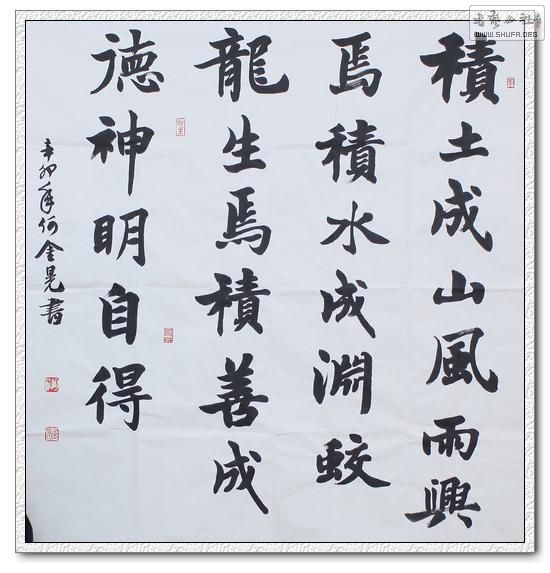 積土成山風雨興
焉積水成淵蛟
龍生焉積善成
德神明自得
辛卯年何金晃書
WWW.SHUFA.ORG